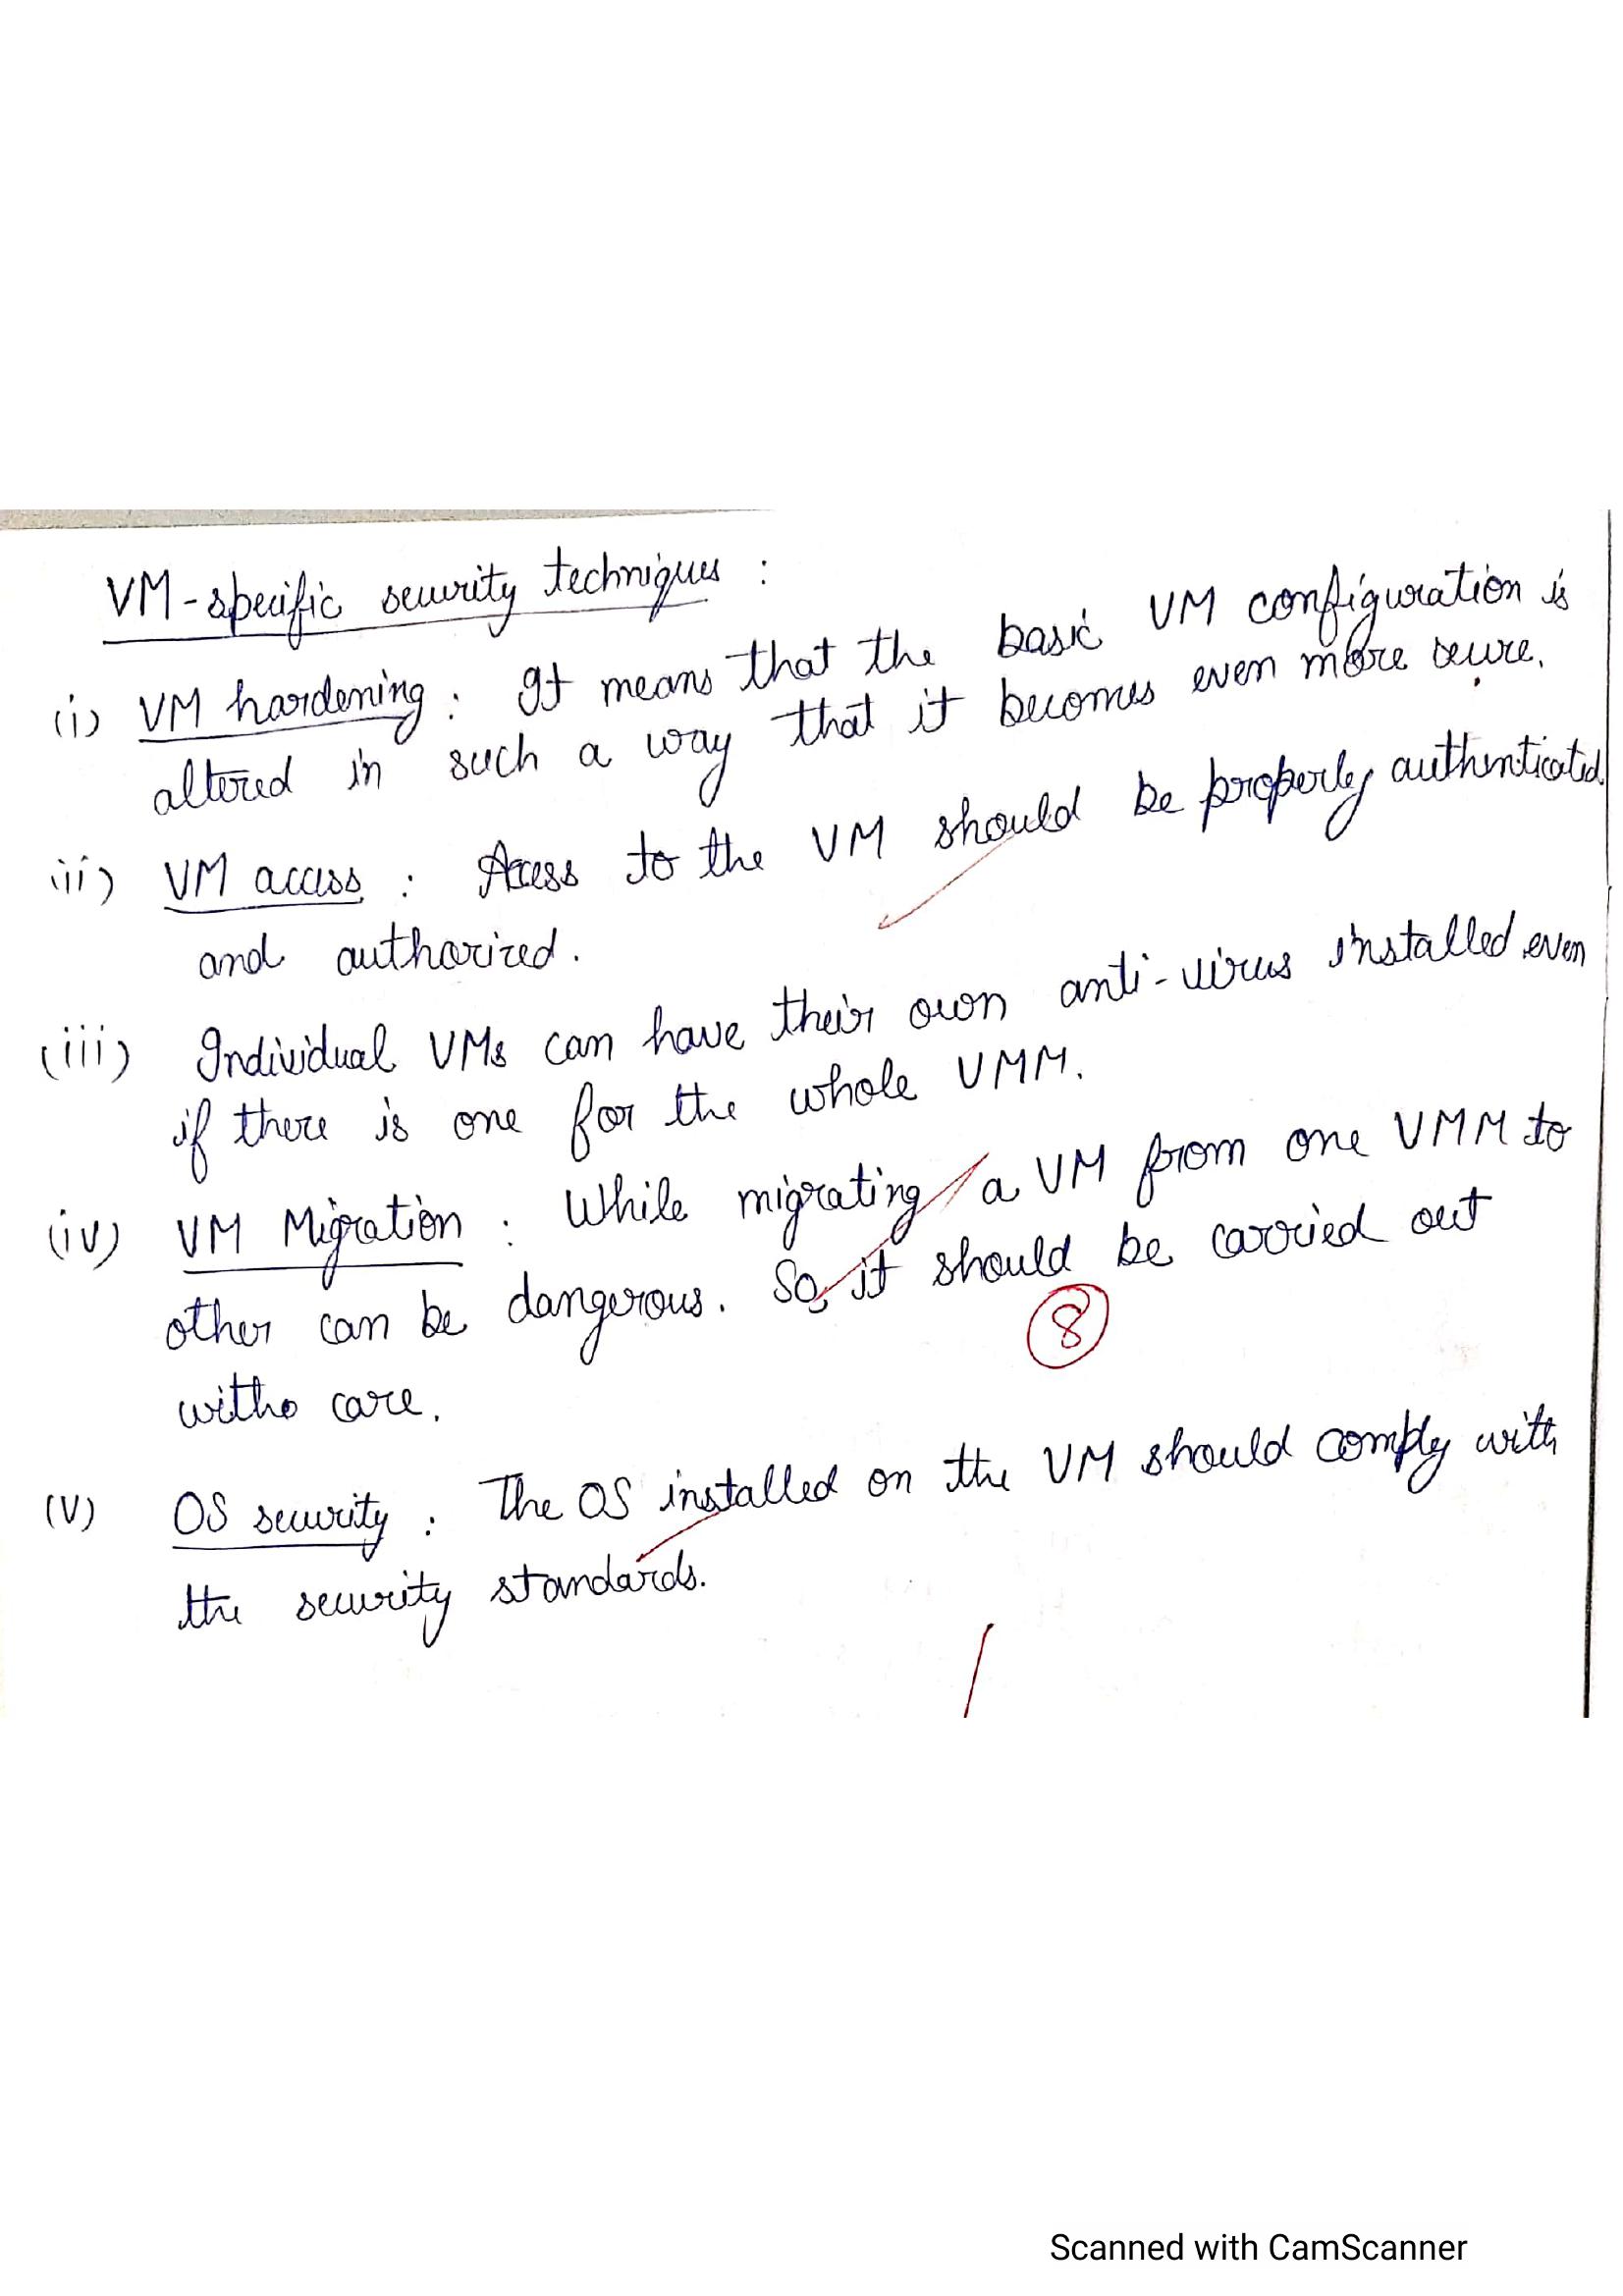 VM-specific security techniques :
(i) VM hardening : It means that the basic VM configuration is
altered in such a way that it becomes even more secure.
(ii) VM access : Access to the VM should be properly authenticated
and authorized.
(iii) Individual VMs can have their own anti-virus installed even
if there is one for the whole VMM.
(iv) VM Migration : While migrating a VM from one VMM to
other can be dangerous. So, it should be carried out
8
witho care.
(V) OS security : The OS installed on the VM should comply with
the security standards.
Scanned with CamScanner